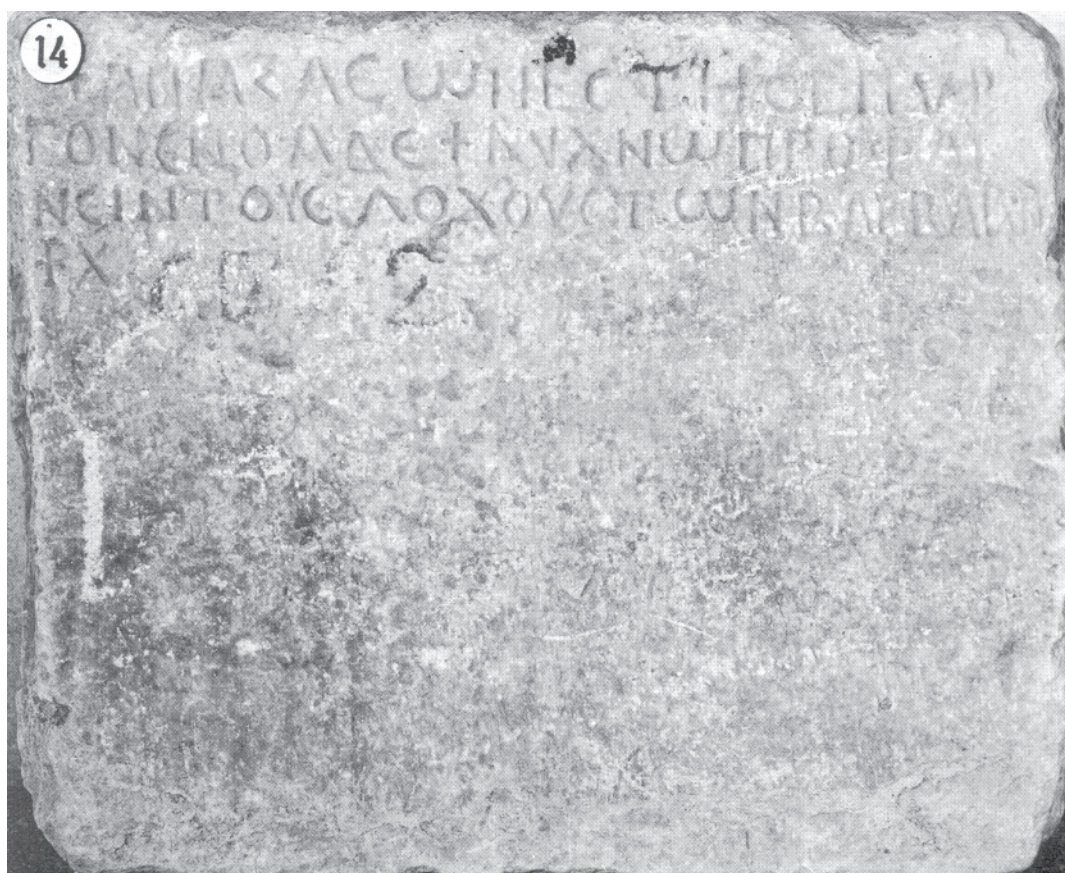 14
ΑΠΑΞΑϹωΠΕϹΤΗϹΕΠVΡ
ΓΟΝΕΝΘΑΔΕ+ΛVΧΝωΠΡΟΦΑΙ
ΝΕΙΝΤΟVϹΛΟΧΟVϹΤωΝΒΑΡΒΑΡω